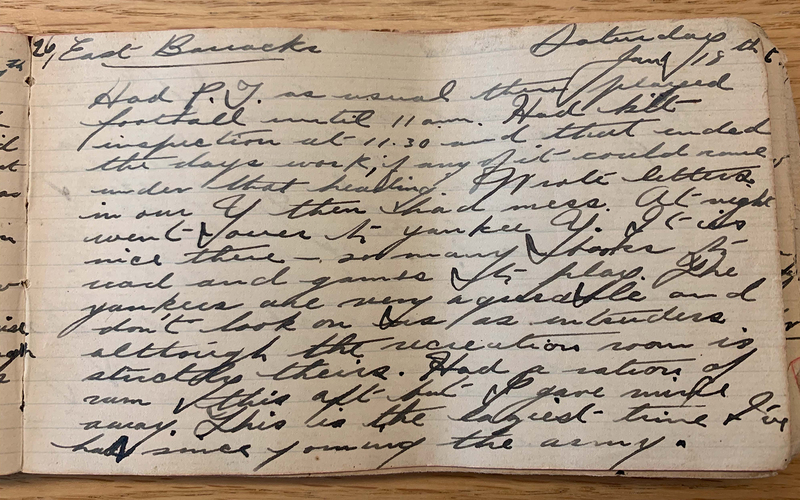 26, East Barracks Saturday
Jan 18th
Had P.T. as usual then played
football until 11 am. Had kit
inspection at 11.30 and that ended
the days work, if any of it could come
under that heading. Wrote letters
in our Y then had mess. At night
went over to yankee Y. It is
nice there – so many books to
read and games to play. The
yankees are very agreeable and
don't look on us as intruders
although the recreation room is
strictly theirs. Had a ration of
rum this aft but I gave mine
away. This is the laziest time I've
had since joining the army.